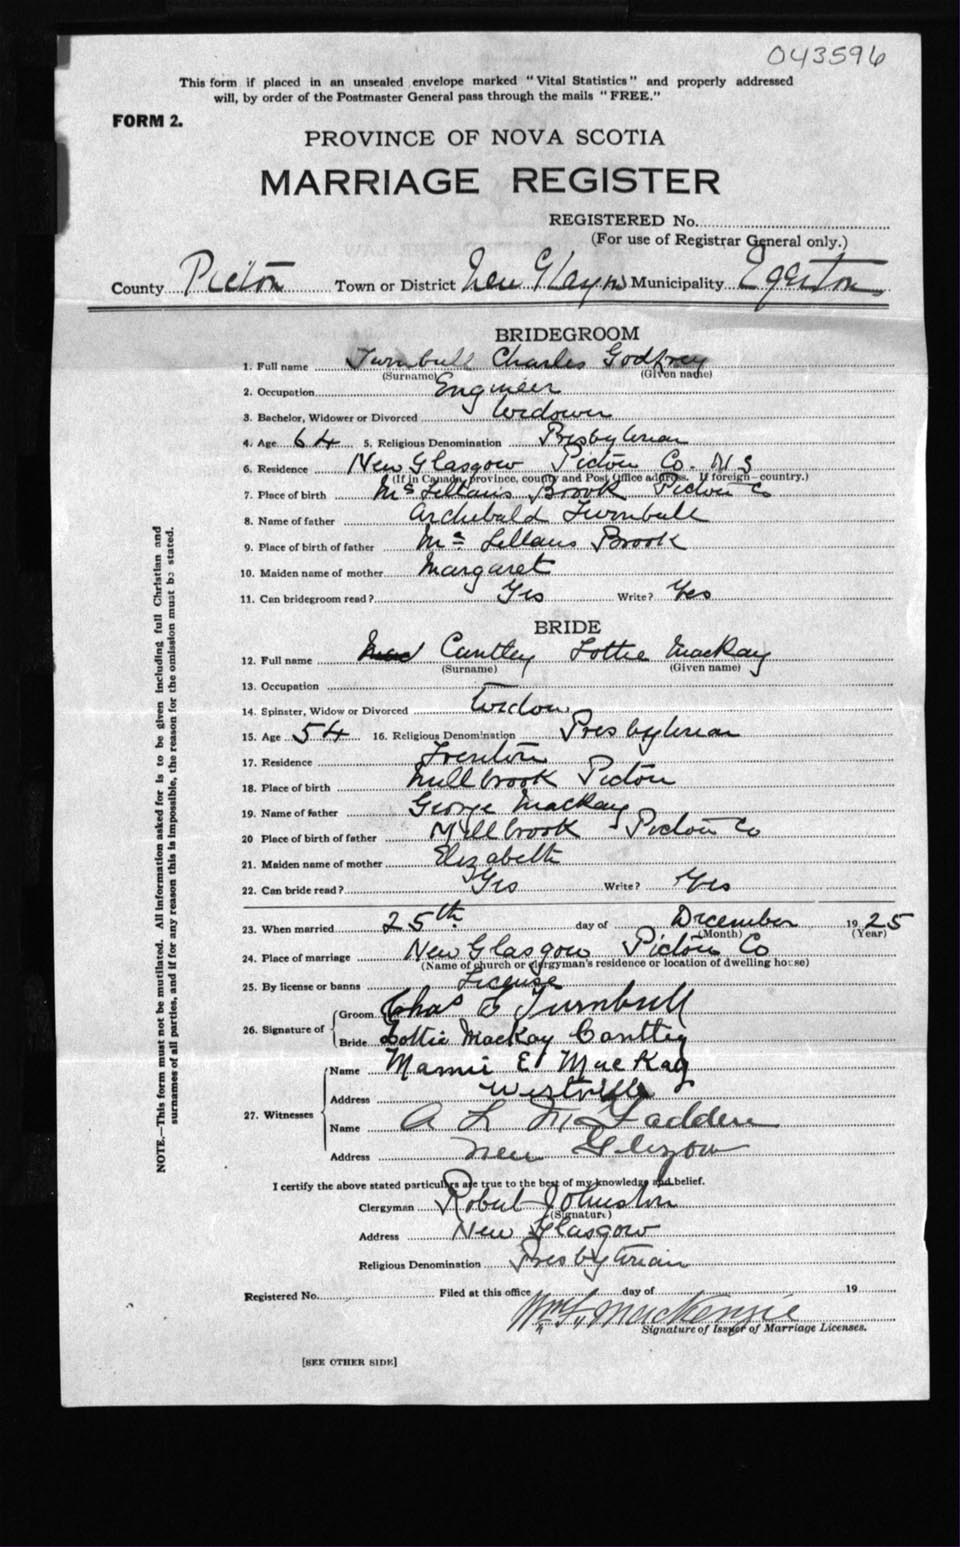 043596
This form if placed in an unsealed envelope marked "Vital Statistics" and properly addressed
will, by order of the Postmaster General pass through the mails "FREE."
FORM 2.
PROVINCE OF NOVA SCOTIA
MARRIAGE REGISTER
REGISTERED No.
(For use of Registrar General only.)
County Pictou Town or District New Glasgow Municipality Egerton
BRIDEGROOM
1. Full name Turnbull Charles Godfrey
(Surname) (Given name)
2. Occupation Engineer
3. Bachelor, Widower or Divorced Widower
4. Age 64 5. Religious Denomination Presbyterian
6. Residence New Glasgow Pictou Co. N S
(If in Canada, province, county and Post Office address. If foreign—country.)
7. Place of birth McLellans Brook Pictou Co
8. Name of father Archibald Turnbull
9. Place of birth of father McLellans Brook
10. Maiden name of mother Margaret
11. Can bridegroom read? Yes Write? Yes
BRIDE
12. Full name Cantley Lottie MacKay
(Surname) (Given name)
13. Occupation
14. Spinster, Widow or Divorced Widow
15. Age 54 16. Religious Denomination Presbyterian
17. Residence Trenton
18. Place of birth Millbrook Pictou
19. Name of father George MacKay
20 Place of birth of father Millbrook Pictou Co
21. Maiden name of mother Elizabeth
22. Can bride read? Yes Write? Yes
23. When married 25th day of December 1925
(Month) (Year)
24. Place of marriage New Glasgow Pictou Co
(Name of church or clergyman's residence or location of dwelling house)
25. By license or banns License
26. Signature of Groom Chas G Turnbull
Bride Lottie MacKay Cantley
27. Witnesses Name Mamie E MacKay
Address Westville
Name A L McFadden
Address New Glasgow
I certify the above stated particulars are true to the best of my knowledge and belief.
Clergyman Robert Johnston
(Signature)
Address New Glasgow
Religious Denomination Presbyterian
Registered No. Filed at this office day of 19
Wm L MacKenzie
Signature of Issuer of Marriage Licenses.
[SEE OTHER SIDE]
NOTE.—This form must not be mutilated. All information asked for is to be given including full Christian and
surnames of all parties, and if for any reason this is impossible, the reason for the omission must be stated.